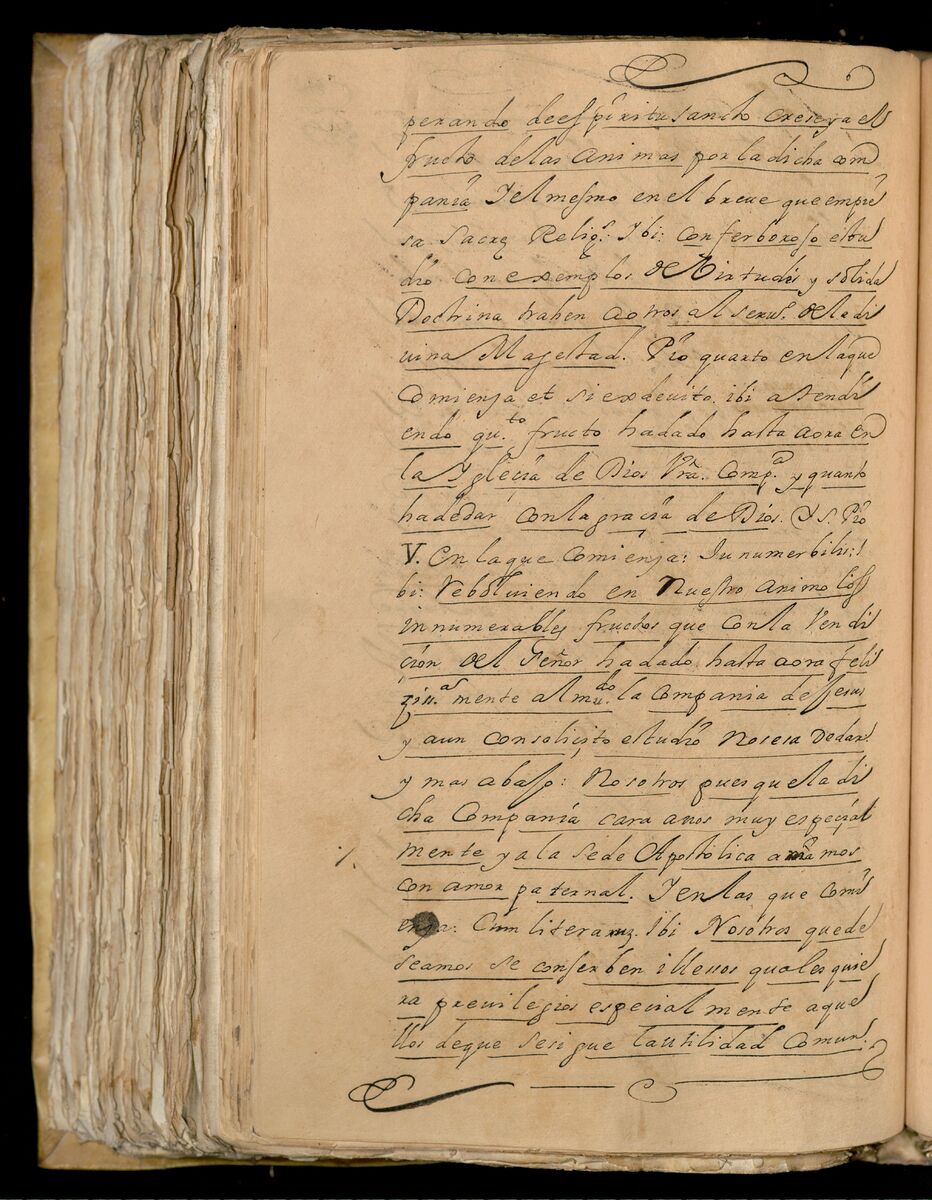 perando de espiritu sancto cresca el
fructo de las animas por la dicha com
pania Y el mesmo en el breue que empie
sa Sacrę Relig.: Ibi: con ferboroso estu
dio con exemplos de Virtudes y solida
Doctrina trahen a otros al seru.º de la di
uina Magestad. Pio quarto en la que
Comiensa et si ex deuito. ibi atendi
endo qu.to fructo ha dado hasta aora en
la Yglecia de Dios Vra. Comp.a y quanto
ha de dar con la gracia de Dios. Y S. Pio
V. en la que Comiença: Innumerbilis: I
bi: Rebolviendo en Nuestro animo los
innumerables fructos que con la Vendi
cion del Señor ha dado hasta aora feli
ziss.a mente al mu.do la Compania de Jesus
y aun con solicito estudio no sesa de dar:
y mas abaso: Nosotros pues que la di
cha Compania cara a nos muy especial
mente y a la Sede Apostolica amamos
con amor paternal. Y en las que comi
ensa: Cum literarum. Ibi Nosotros que de
seamos se conserben illessos quales quie
ra preuilegios especial mente aque
llos de que se sigue la utilidad Comun.